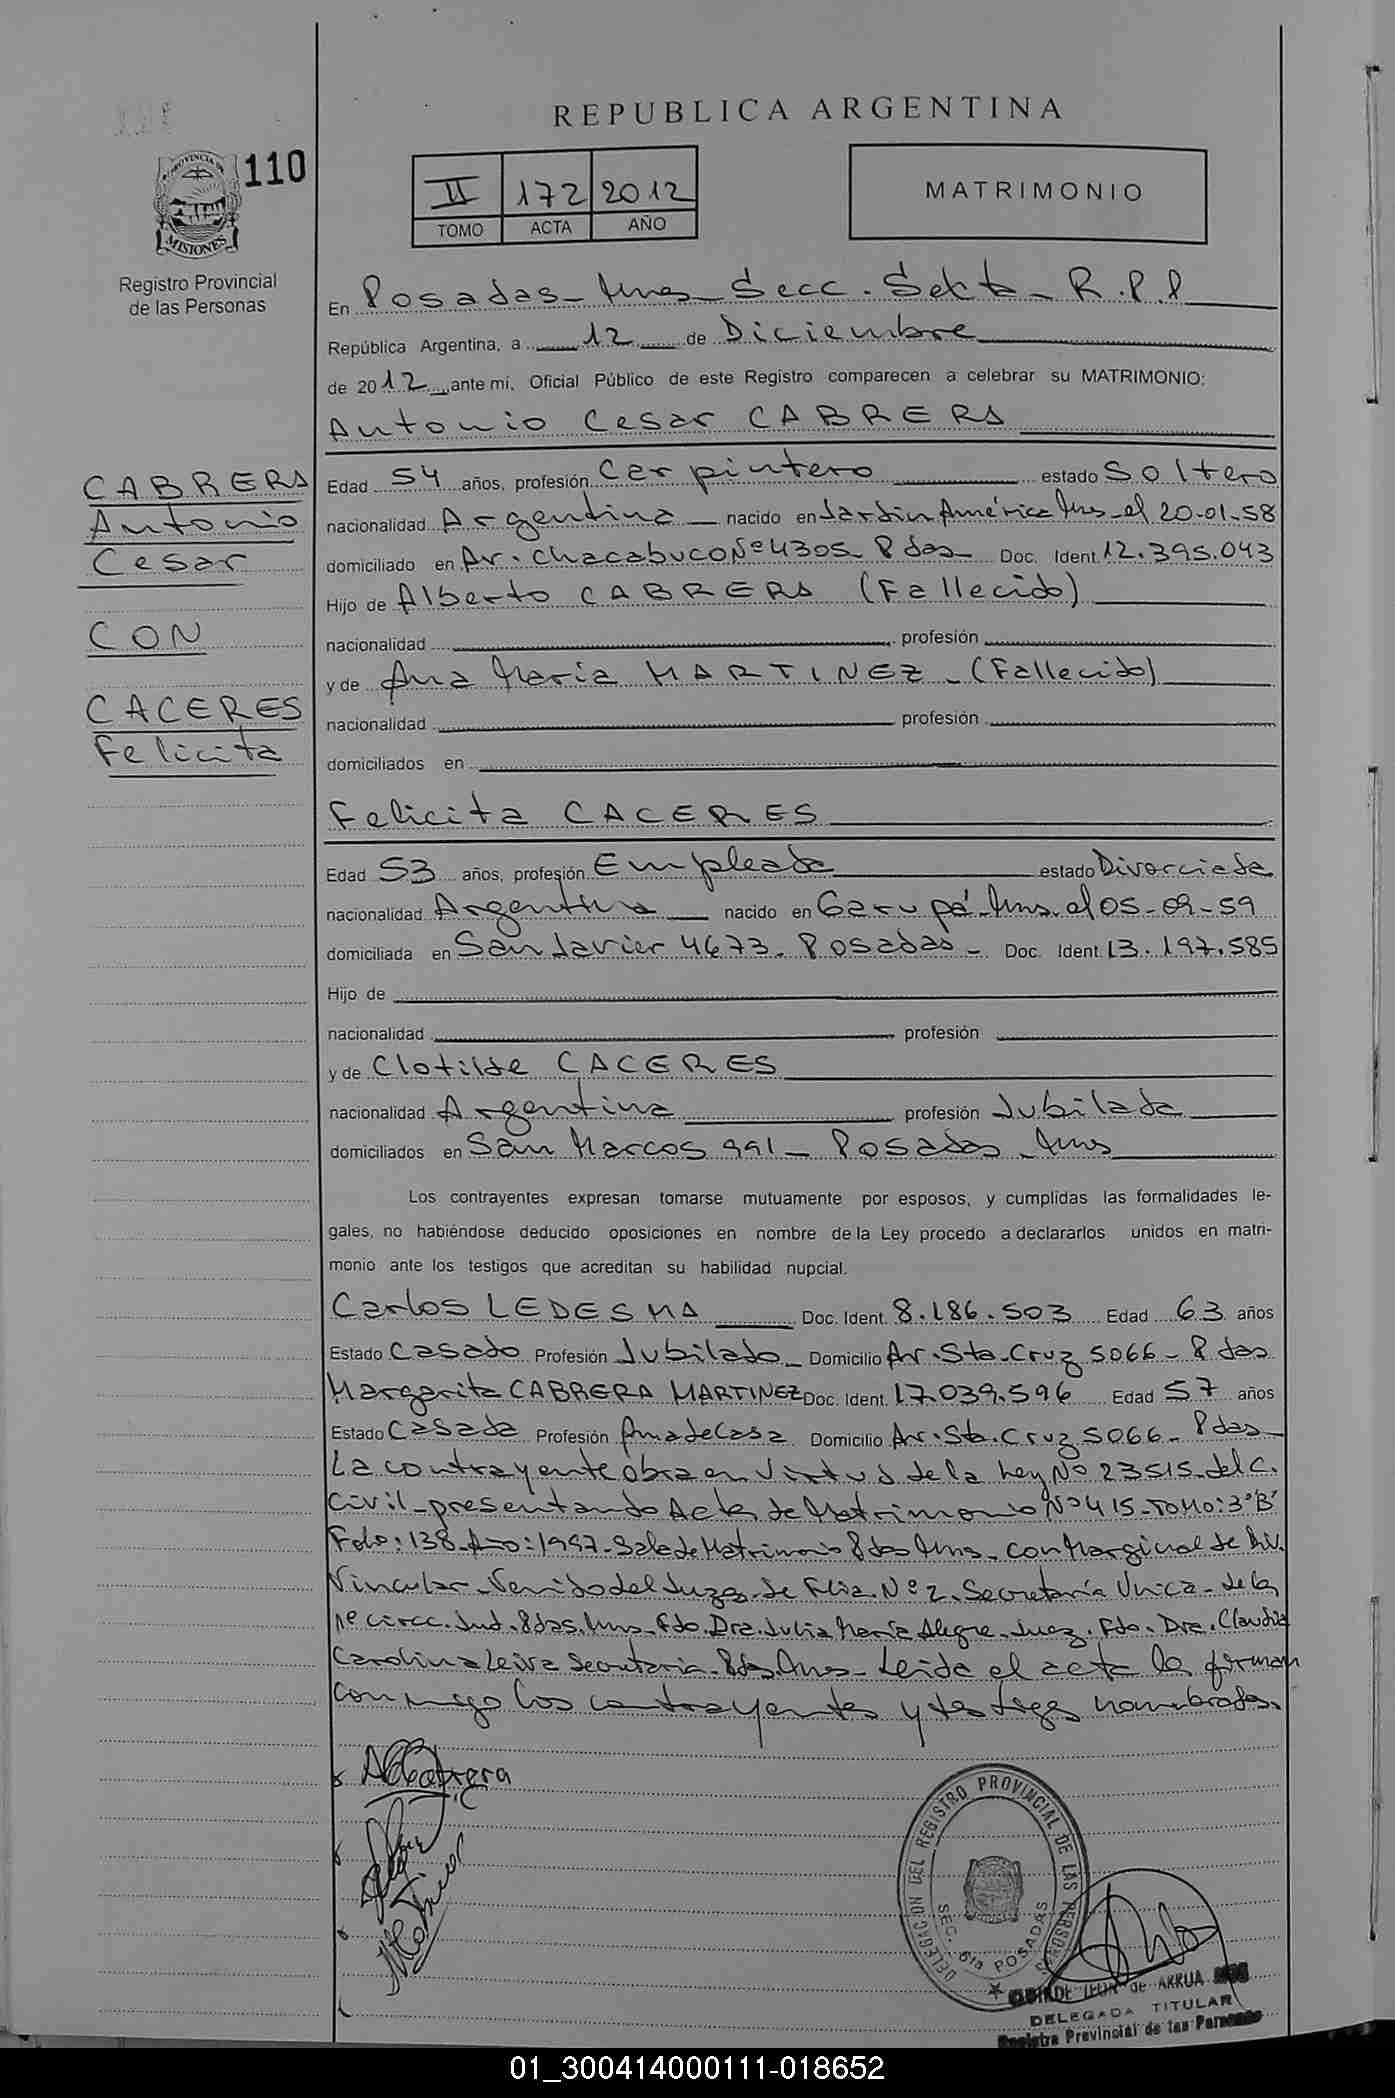 REPUBLICA ARGENTINA
110
PROVINCIA DE
MISIONES
Registro Provincial
de las Personas
II 172 2012
TOMO ACTA AÑO
MATRIMONIO
En Posadas - Mnes - Secc. Sexta - R.P.P
República Argentina, a 12 de Diciembre
de 2012 ante mi, Oficial Público de este Registro comparecen a celebrar su MATRIMONIO:
Antonio Cesar CABRERA
CABRERA
Antonio
Cesar
CON
CACERES
Felicita
Edad 54 años, profesión Carpintero estado Soltero
nacionalidad Argentina nacido en Jardin América Mnes - el 20-01-58
domiciliado en Av. Chacabuco Nº 4305 - Pdas - Doc. Ident. 12.395.043
Hijo de Alberto CABRERA (Fallecido)
nacionalidad profesión
y de Ana Maria MARTINEZ - (Fallecido)
nacionalidad profesión
domiciliados en
Felicita CACERES
Edad 53 años, profesión Empleada estado Divorciada
nacionalidad Argentina nacido en Garupá - Mnes. el 05-09-59
domiciliada en San Javier 4673 - Posadas - Doc. Ident. 13.197.585
Hijo de
nacionalidad profesión
y de Clotilde CACERES
nacionalidad Argentina profesión Jubilada
domiciliados en San Marcos 991 - Posadas - Mnes
Los contrayentes expresan tomarse mutuamente por esposos, y cumplidas las formalidades le-
gales, no habiéndose deducido oposiciones en nombre de la Ley procedo a declararlos unidos en matri-
monio ante los testigos que acreditan su habilidad nupcial.
Carlos LEDESMA Doc. Ident. 8.186.503 Edad 63 años
Estado Casado Profesión Jubilado - Domicilio Av. Sta. Cruz 5066 - Pdas
Margarita CABRERA MARTINEZ Doc. Ident. 17.039.596 Edad 57 años
Estado Casada Profesión Ama de Casa Domicilio Av. Sta. Cruz 5066 - Pdas -
La contrayente obra en virtud de la Ley Nº 23515 - del C.
Civil - presentando Acta de Matrimonio Nº 415 - TOMO: 3º"B"
Folio: 138 - Año: 1997 - Sala de Matrimonio Pdas Mnes - con Marginal de Div.
Vincular - Venido del Juzg. de Flia. Nº 2 - Secretaría Unica - de la
1º circc. Jud. Pdas. Mnes - Fdo. Dra. Julia María Alegre - Juez. Fdo. Dra. Claudia
Carolina Leiva Secretaria - Pdas. Mnes - Leida el acta la firman
conmigo los contrayentes y testigos nombrados.
A C Cabrera
DELEGACION DEL REGISTRO PROVINCIAL DE LAS PERSONAS
SEC. 6ta POSADAS
de ARRUA
DELEGADA TITULAR
Registro Provincial de las Personas
01_300414000111-018652